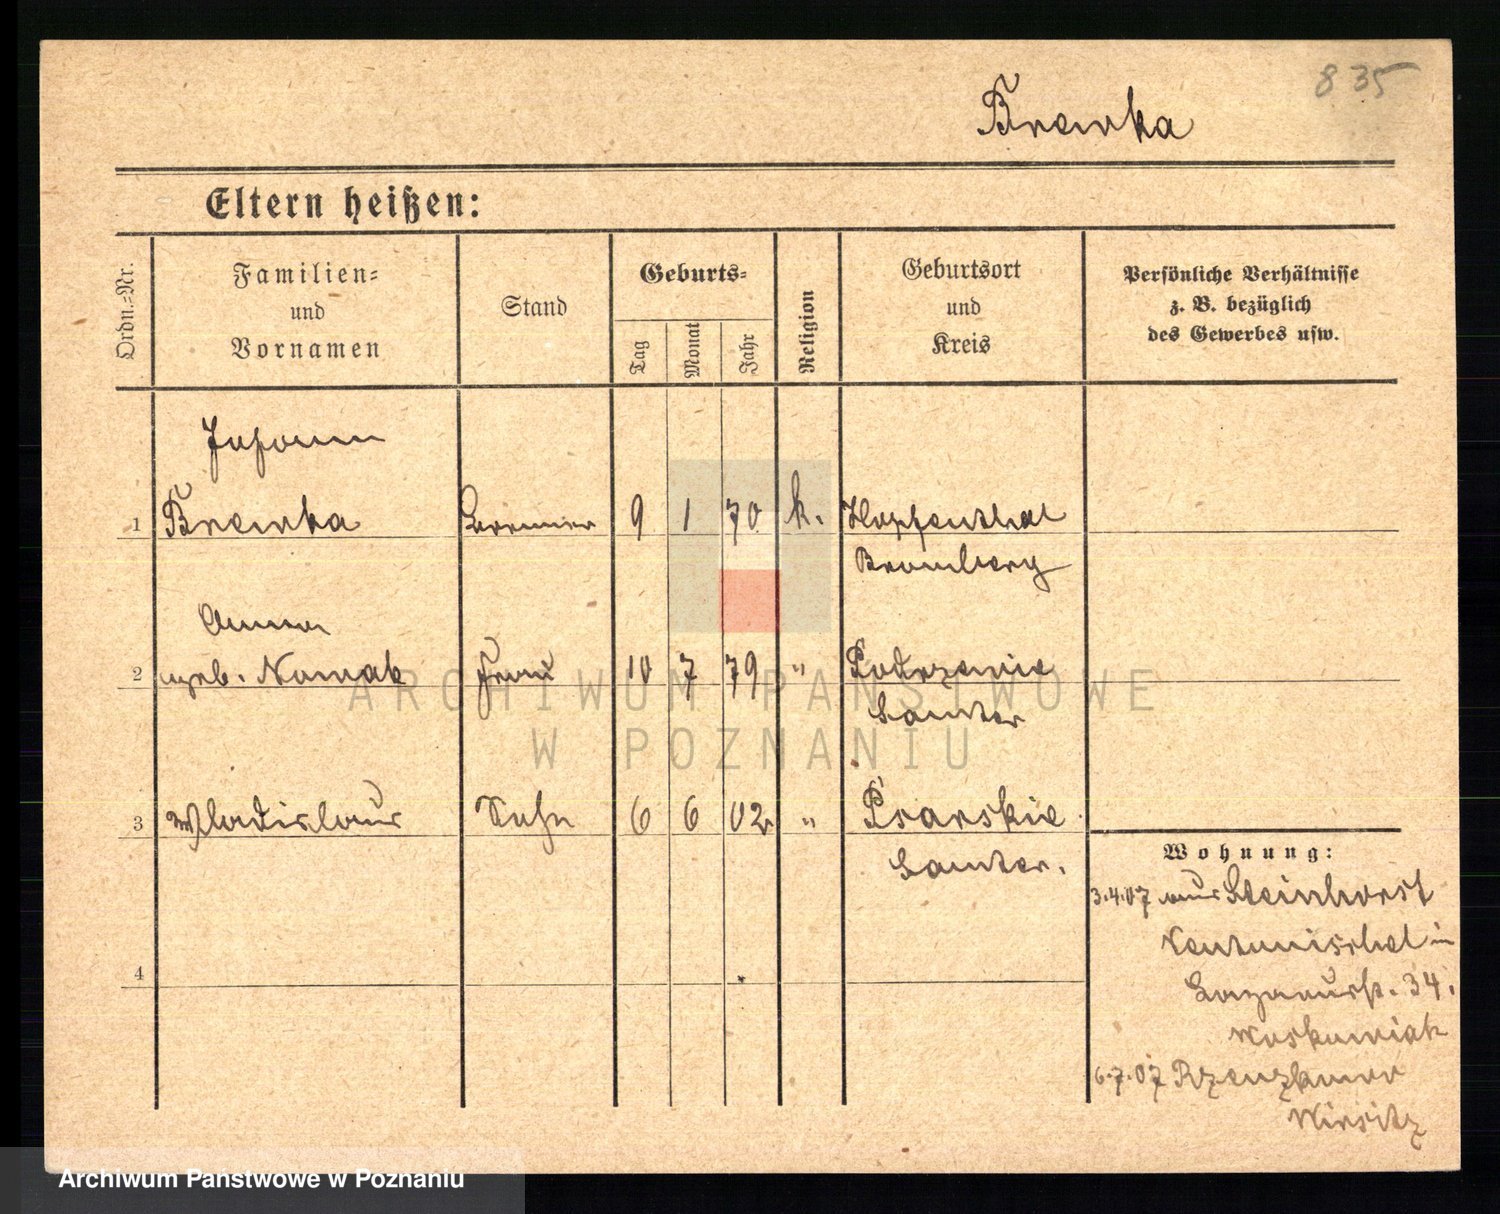 835
Brenka
Eltern heißen:
Ordn.=Nr.
Familien=
und
Vornamen
Stand
Geburts=
Tag
Monat
Jahr
Religion
Geburtsort
und
Kreis
Persönliche Verhältnisse
z. B. bezüglich
des Gewerbes usw.
Johann
1 Brenka 9 1 70 k. Hopfenthal
Bromberg
Anna
2 geb. Nowak Frau 10 7 79 "
Samter
3 Wladislaus Sohn 6 6 02 " Psarskie
Samter.
Wohnung:
3.4.07 aus Steinhorst
Neutomischel in
Lazarusstr. 34.
4
6.7.07
Wirsitz
ARCHIWUM PAŃSTWOWE
W POZNANIU
Archiwum Państwowe w Poznaniu